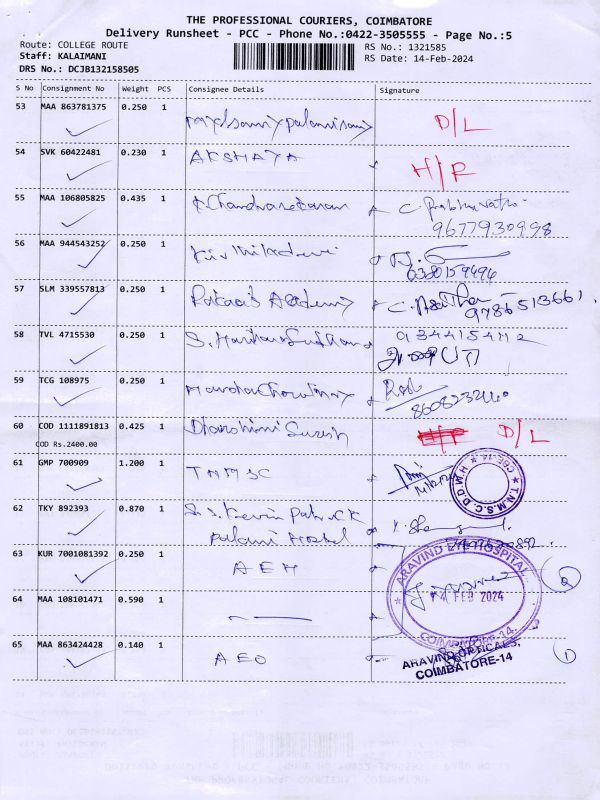 THE PROFESSIONAL COURIERS, COIMBATORE
Delivery Runsheet - PCC - Phone No.:0422-3505555 - Page No.:5
Route: COLLEGE ROUTE RS No.: 1321585
Staff: KALAIMANI RS Date: 14-Feb-2024
DRS No.: DCJB132158505
S No Consignment No Weight PCS Consignee Details Signature
53 MAA 863781375 0.250 1
D/L
54 SVK 60422481 0.230 1 AKSHAYA
H/R
55 MAA 106805825 0.435 1 K. Chandrasekaran C. Prabhavathi
9677930998
56 MAA 944543252 0.250 1
57 SLM 339557813 0.250 1 Academy
9786513661
58 TVL 4715530 0.250 1
59 TCG 108975 0.250 1
60 COD 1111891813 0.425 1 Dharshini Suresh D/L
COD Rs.2400.00
61 GMP 700909 1.200 1 TNMSC
CBE-14 ★ T.N.M.S.C.D.D.H.M. ★
62 TKY 892393 0.870 1 S. J. Kevin Patrick
Palani Hostel
63 KUR 7001081392 0.250 1 AEH
ARAVIND EYE HOSPITAL
FEB 2024
2
64 MAA 108101471 0.590 1
65 MAA 863424428 0.140 1 AEO
ARAVIND OPTICALS,
COIMBATORE-14
1